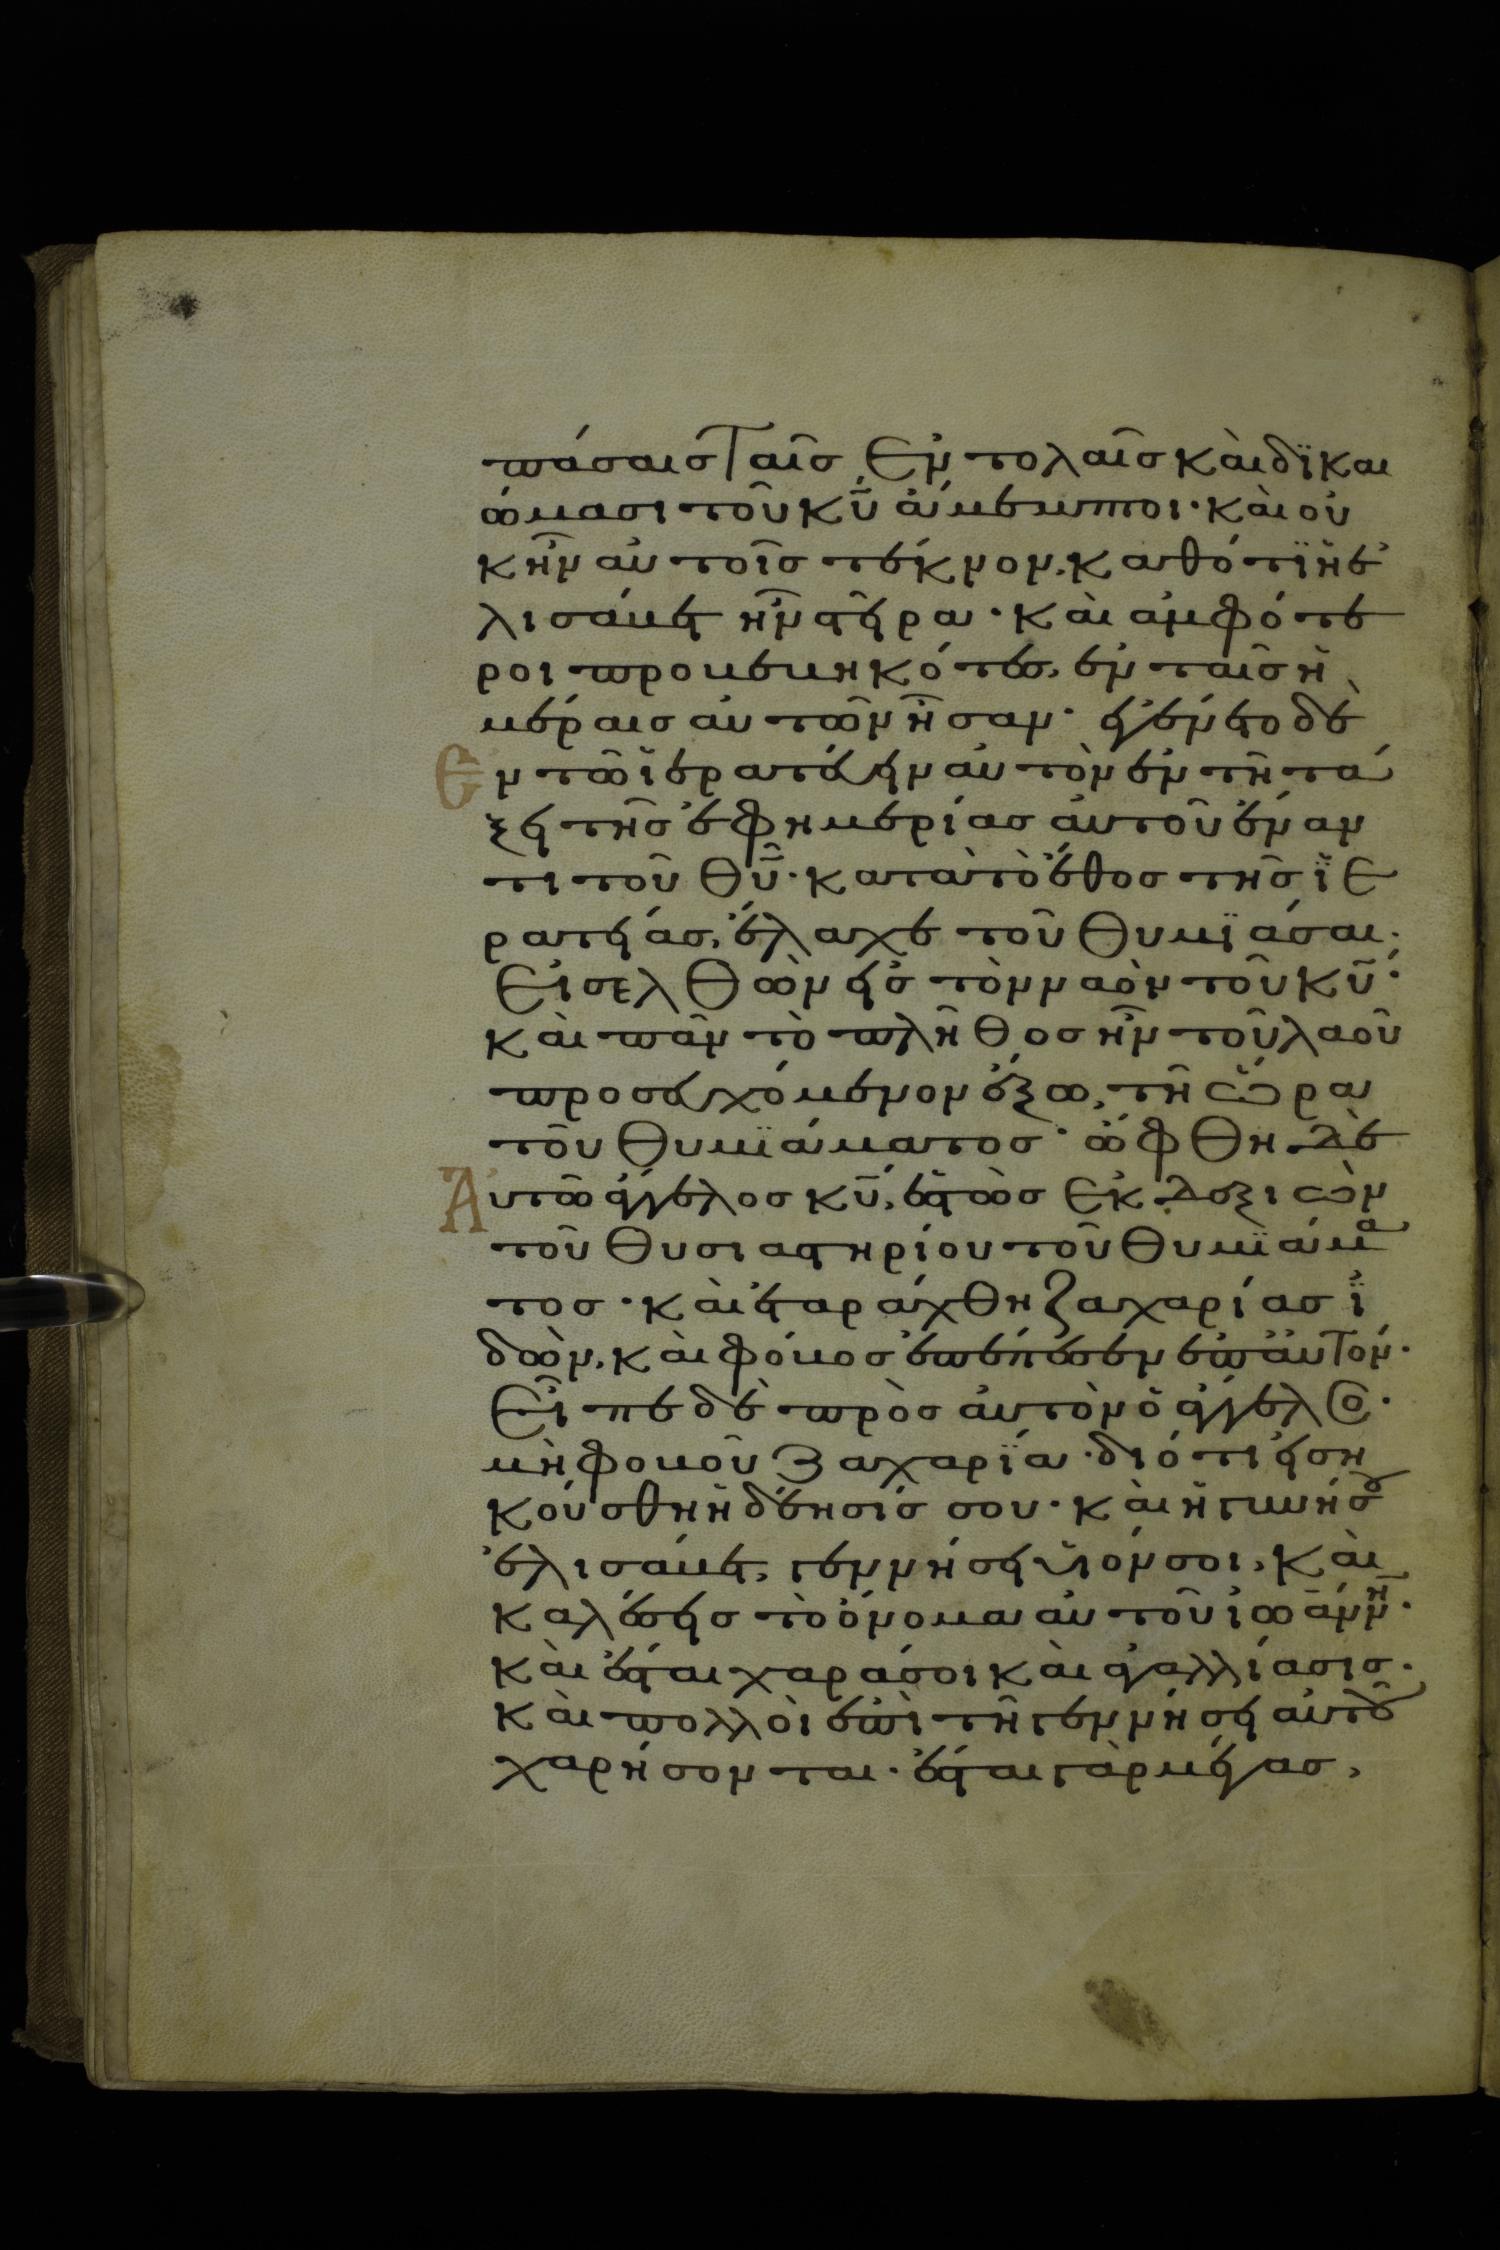 πάσαις ταῖς ἐντολαῖς καὶ δϊκαι
ώμασι τοῦ κ̅υ̅ ἄμεμπτοι· καὶ οὐ
κ ἦν αὐτοῖς τέκνον, καθότϊ ἡ ἐ
λισάβετ ἦν στεῖρα· καὶ ἀμφότε
ροι προβεβηκότες, ἐν ταῖς ἡ
μέραις αὐτῶν ἦσαν· ἐγένετο δὲ
Ἐν τῶ ἱερατεύειν αὐτὸν ἐν τῆ τά
ξει τῆς ἐφημερίας αὐτοῦ ἔναν
τι τοῦ θ̅υ̅· κατὰ τὸ ἔθος τῆς ἱε
ρατείας, ἔλαχε τοῦ θυμϊάσαι·
Εἰσελθὼν εἰς τὸν ναὸν τοῦ κ̅υ̅·
καὶ πᾶν τὸ πλῆθος ἦν τοῦ λαοῦ
προσευχόμενον ἔξω, τῆ ὥρα
τοῦ θυμϊάματος· ὤφθη δὲ
Αὐτῶ ἄγγελος κ̅υ̅, ἑστὼς ἐκ δεξιῶν
τοῦ θυσιαστηρίου τοῦ θυμϊάμα
τος· καὶ ἐταράχθη ζαχαρίας ἰ
δών, καὶ φόβος ἐπέπεσεν ἐπ αὐτόν·
Εἶπε δὲ πρὸς αὐτὸν ὁ ἄγγελος·
μὴ φοβοῦ Ζαχαρϊα· διότι εἰση
κούσθη ἡ δέησίς σου· καὶ ἡ γυνή σου
ἐλισάβετ, γεννήσει υἱόν σοι, καὶ
καλέσεις τὸ ὄνομα αὐτοῦ ἰωάννην·
καὶ ἔσται χαρά σοι καὶ ἀγαλλίασις·
καὶ πολλοὶ ἐπὶ τῆ γεννήσει αὐτοῦ
χαρήσονται· ἔσται γὰρ μέγας,